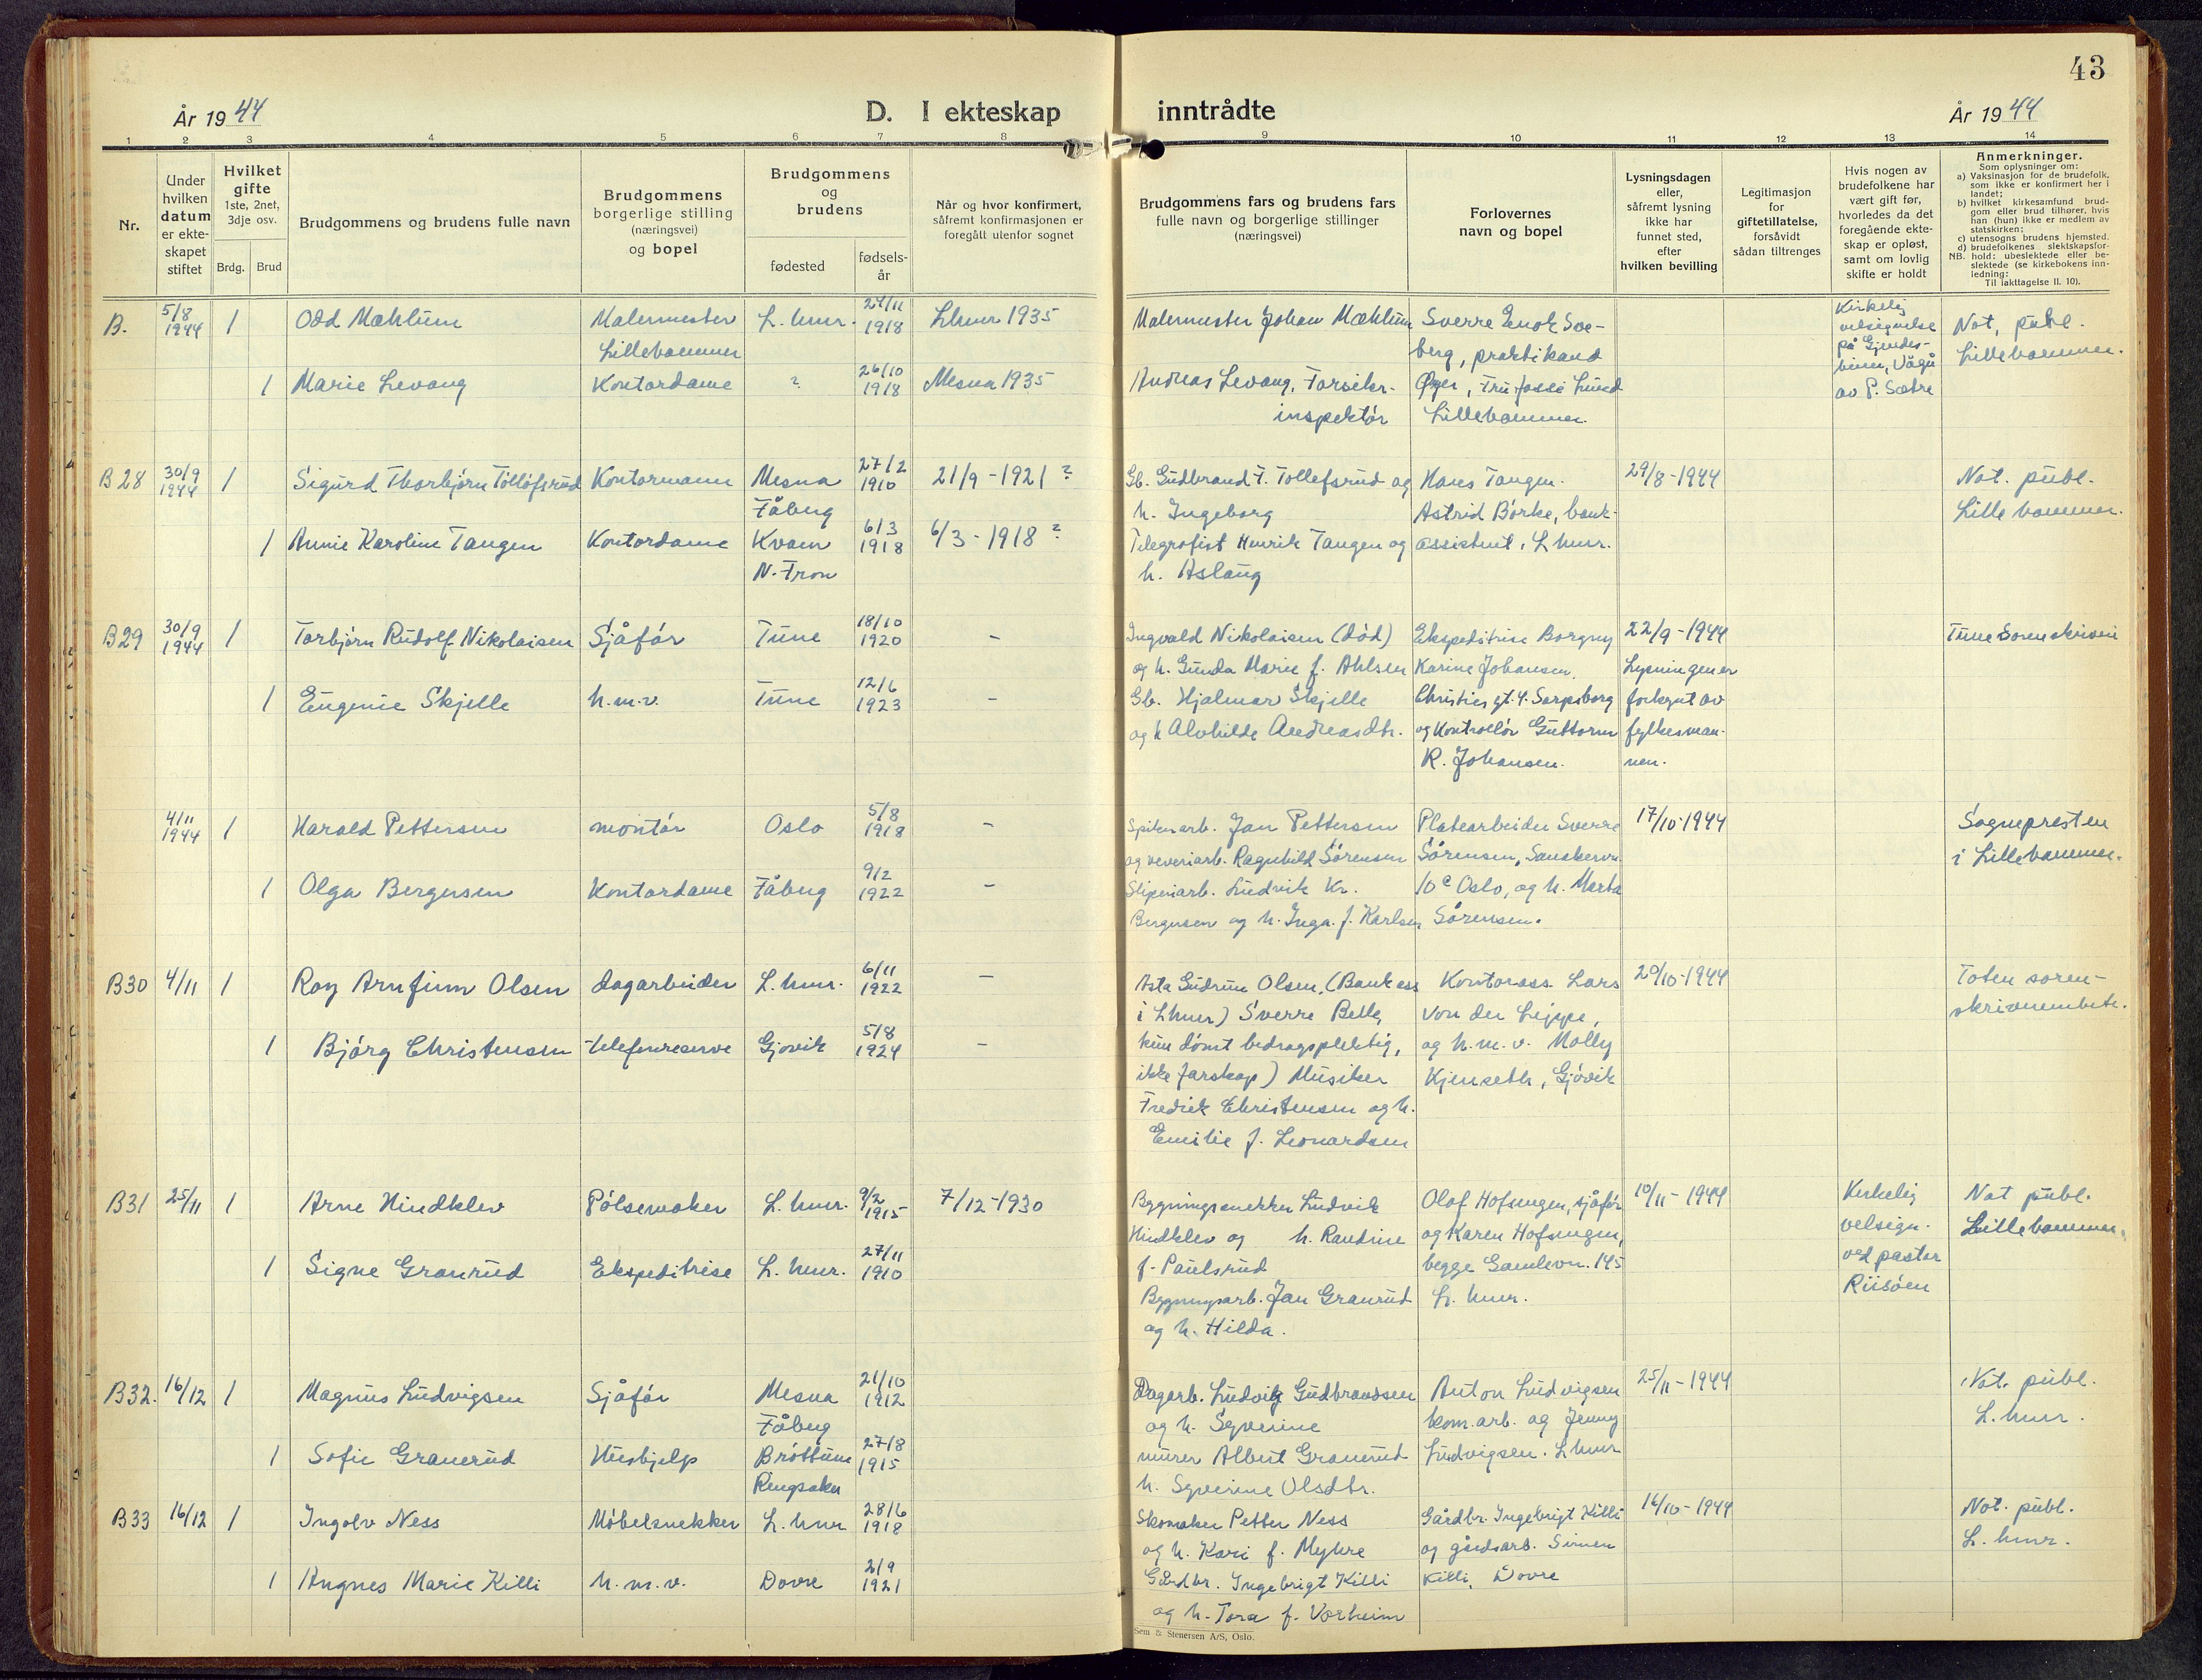 43
År 1944
D. I ekteskap inntrådte
År 1944
1 2 3 4 5 6 7 8 9 10 11 12 13 14
Nr.
Under hvilken datum er ekteskapet stiftet
Hvilket gifte 1ste, 2net, 3dje osv.
Brdg. Brud
Brudgommens og brudens fulle navn
Brudgommens borgerlige stilling (næringsvei) og bopel
Brudgommens og brudens
fødested
fødselsår
Når og hvor konfirmert, såfremt konfirmasjonen er foregått utenfor sognet
Brudgommens fars og brudens fars fulle navn og borgerlige stillinger (næringsvei)
Forlovernes navn og bopel
Lysningsdagen eller, såfremt lysning ikke har funnet sted, efter hvilken bevilling
Legitimasjon for giftetillatelse, forsåvidt sådan tiltrenges
Hvis nogen av brudefolkene har vært gift før, hvorledes da det foregående ekteskap er opløst, samt om lovlig skifte er holdt
Anmerkninger.
Som oplysninger om:
a) Vaksinasjon for de brudefolk, som ikke er konfirmert her i landet;
b) hvilket kirkesamfund brudgom eller brud tilhører, hvis han (hun) ikke er medlem av statskirken;
c) utensogns brudens hjemsted.
d) brudefolkenes slektskapsforhold: ubeslektede eller beslektede (se kirkebokens innledning:
NB.
Til iakttagelse II. 10).
B. 5/8 1944 1 Odd Mæhlum Malermester L.hmr. 24/11 1918 Lhmr 1935
Lillehammer
1 Marie Levang Kontordame ? 26/10 1918 Mesna 1935
Malermester Johan Mæhlum
Andreas Levang, Forsikr.
inspektør
Sverre Enok Soe-
berg, praktikand
Øyer, Fru Lund
Lillehammer.
Kirkelig
velsignelse
på Gjendes-
heim, Vågå
av P. Sætre
Not. publ.
Lillehammer.
B28 30/9 1944 1 Sigurd Thorbjørn Tollofsrud Kontormann Mesna 27/2 1910 21/9-1921 ?
Fåberg
1 Annie Karoline Tangen Kontordame Kvam 6/3 1918 6/3-1918 ?
N. Fron
Gb. Gudbrand T. Tollefsrud og
h. Ingeborg
Telegrafist Henrik Tangen og
h. Aslaug
Hans Tangen.
Astrid Børke, bank-
assistent, L.hmr.
29/8-1944
Not. publ.
Lillehammer.
B29 30/9 1944 1 Torbjørn Rudolf Nikolaisen Sjåfør Tune 18/10 1920 -
1 Eugenie Skjelle h.m.v. Tune 12/6 1923 -
Ingvald Nikolaisen (død)
og h. Gunda Marie f. Ahlsen
Gb. Hjalmar Skjelle
og h Alvhilde Andreasdtr.
Ekspeditrise Borgny
Karine Johansen,
Christies gt. 4. Sarpsborg
og Kontrollør Guttorm
R. Johansen.
22/9-1944
Lysningen er
forkynt av
fylkesman-
nen.
Tune Sorenskriveri
4/11 1944 1 Harald Pettersen montør Oslo 5/8 1918 -
1 Olga Bergersen Kontordame Fåberg 9/2 1922 -
arb. Jan Pettersen
og veveriarb. Ragnhild Sørensen
Sliperiarb. Ludvik Kr.
Bergersen og h. Inga f. Karlsen
Platearbeider Sverre
Sørensen,
10c Oslo, og h. Marta
Sørensen.
17/10-1944
Sognepresten
i Lillehammer.
B30 4/11 1 Roy Arnfinn Olsen dagarbeider L.hmr. 6/11 1922 -
1 Bjørg Christensen telefonreserve Gjøvik 5/8 1924 -
Asta Gudrun Olsen, (Bank ass
i Lhmr) Sverre Belle,
kun dømt bedragspliktig,
ikke farskap) Musiker
Fredrik Christensen og h.
Emilie f. Leonardsen
Kontorass. Lars
Von der Lippe,
og h.m.v. Molly
Kjenseth, Gjøvik
20/10-1944
Toten soren-
skriverembete.
B31 25/11 1 Arne Hindklev Pølsemaker L.hmr. 9/2 1915 7/12-1930
1 Signe Granrud Ekspeditrise L.hmr. 27/11 1910
Bygningssnekker Ludvik
Hindklev og h. Randine
f. Paulsrud
Bygningsarb. Jan Granrud
og h. Hilda.
Olof Hofsengen, sjåfør
og Karen Hofsengen,
begge Gamlevn. 145
L. hmr.
10/11-1944
Kirkelig
velsign.
ved pastor
Riisøen
Not publ.
Lillehammer.
B32. 16/12 1 Magnus Ludvigsen Sjåfør Mesna 21/10 1912
Fåberg
1 Sofie Granerud Hushjelp Brøttum 27/8 1915
Ringsaker
Dagarb. Ludvig Gudbrandsen
og h. Syverine
murer Albert Granerud
h. Syverine Olsdtr.
Anton Ludvigsen
kom.arb. og Jenny
Ludvigsen. L.hmr
25/11-1944
Not. publ.
L.hmr.
B33 16/12 1 Ingolv Ness Møbelsnekker L.hmr 28/6 1918
1 Angnes Marie Killi h.m.v. Dovre 2/9 1921
Skomaker Petter Ness
og h. Kari f. Myhre
Gårdbr. Ingebrigt Killi
og h. Tora f. Vorheim
Gårdbr. Ingebrigt Killi
og gårdsarb. Simen
Killi, Dovre
16/10-1944
Not. publ.
L. hmr.
Sem & Stenersen A/S, Oslo.